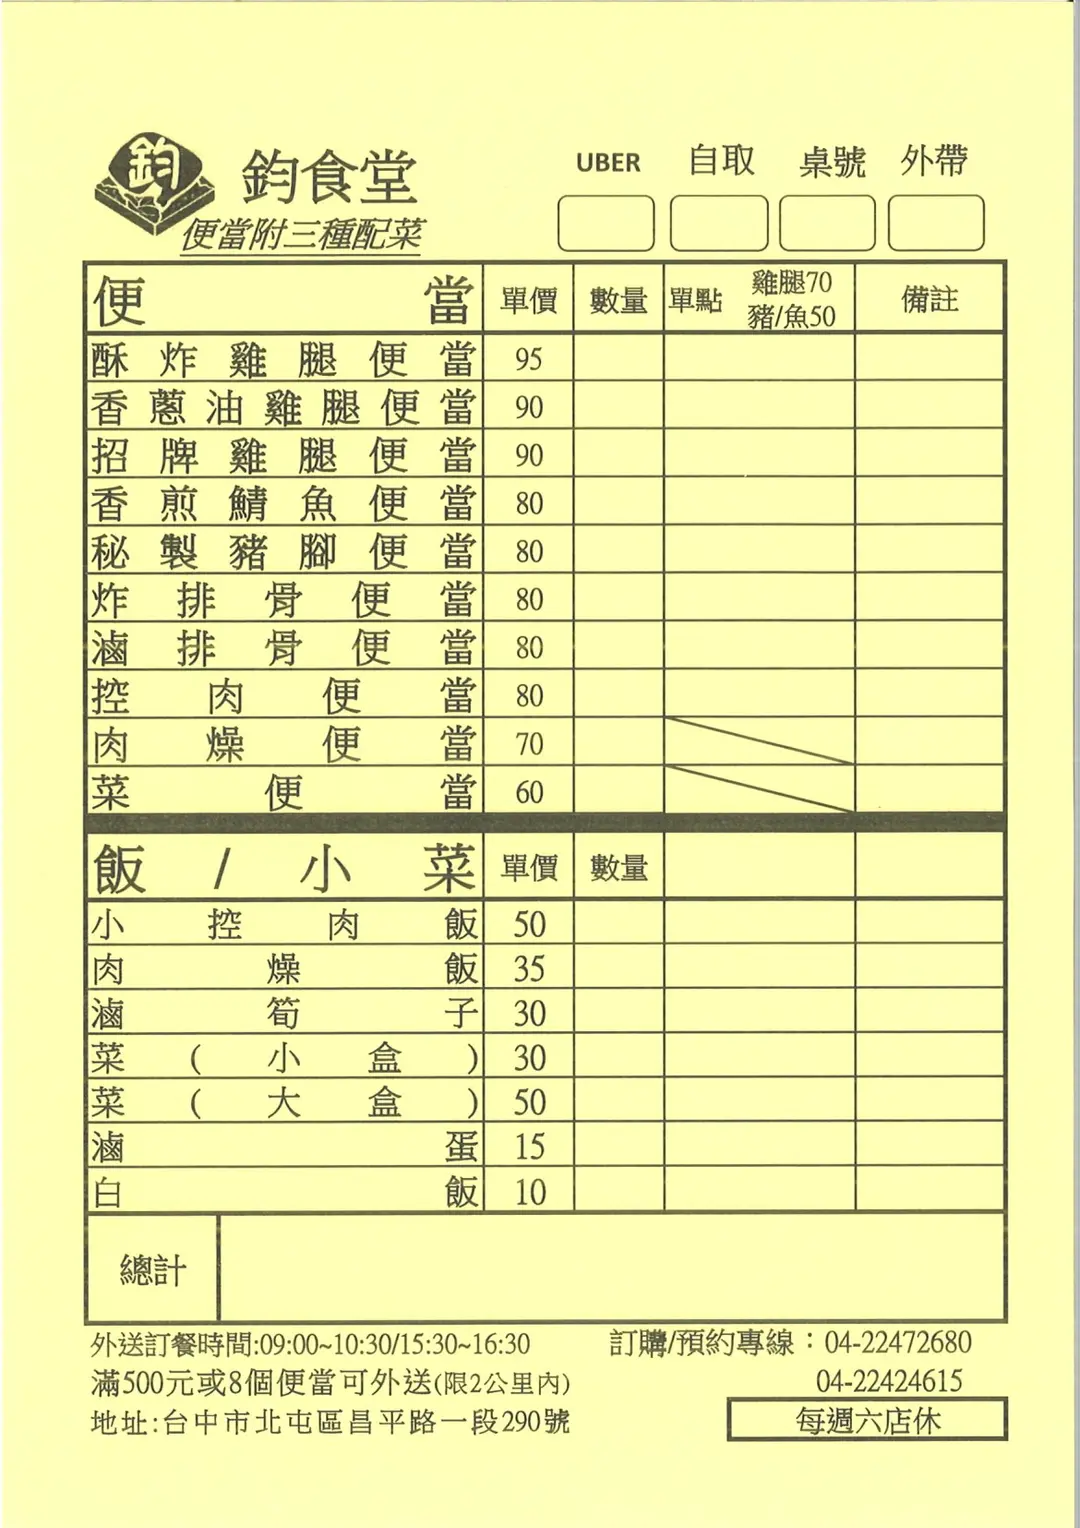 鈞
鈞食堂
便當附三種配菜
UBER 自取 桌號 外帶
便當 單價 數量 單點 雞腿70 豬/魚50 備註
酥炸雞腿便當 95
香蔥油雞腿便當 90
招牌雞腿便當 90
香煎鯖魚便當 80
秘製豬腳便當 80
炸排骨便當 80
滷排骨便當 80
控肉便當 80
肉燥便當 70
菜便當 60
飯/小菜 單價 數量
小控肉飯 50
肉燥飯 35
滷筍子 30
菜(小盒) 30
菜(大盒) 50
滷蛋 15
白飯 10
總計
外送訂餐時間:09:00~10:30/15:30~16:30 訂購/預約專線：04-22472680
滿500元或8個便當可外送(限2公里內) 04-22424615
地址:台中市北屯區昌平路一段290號 每週六店休